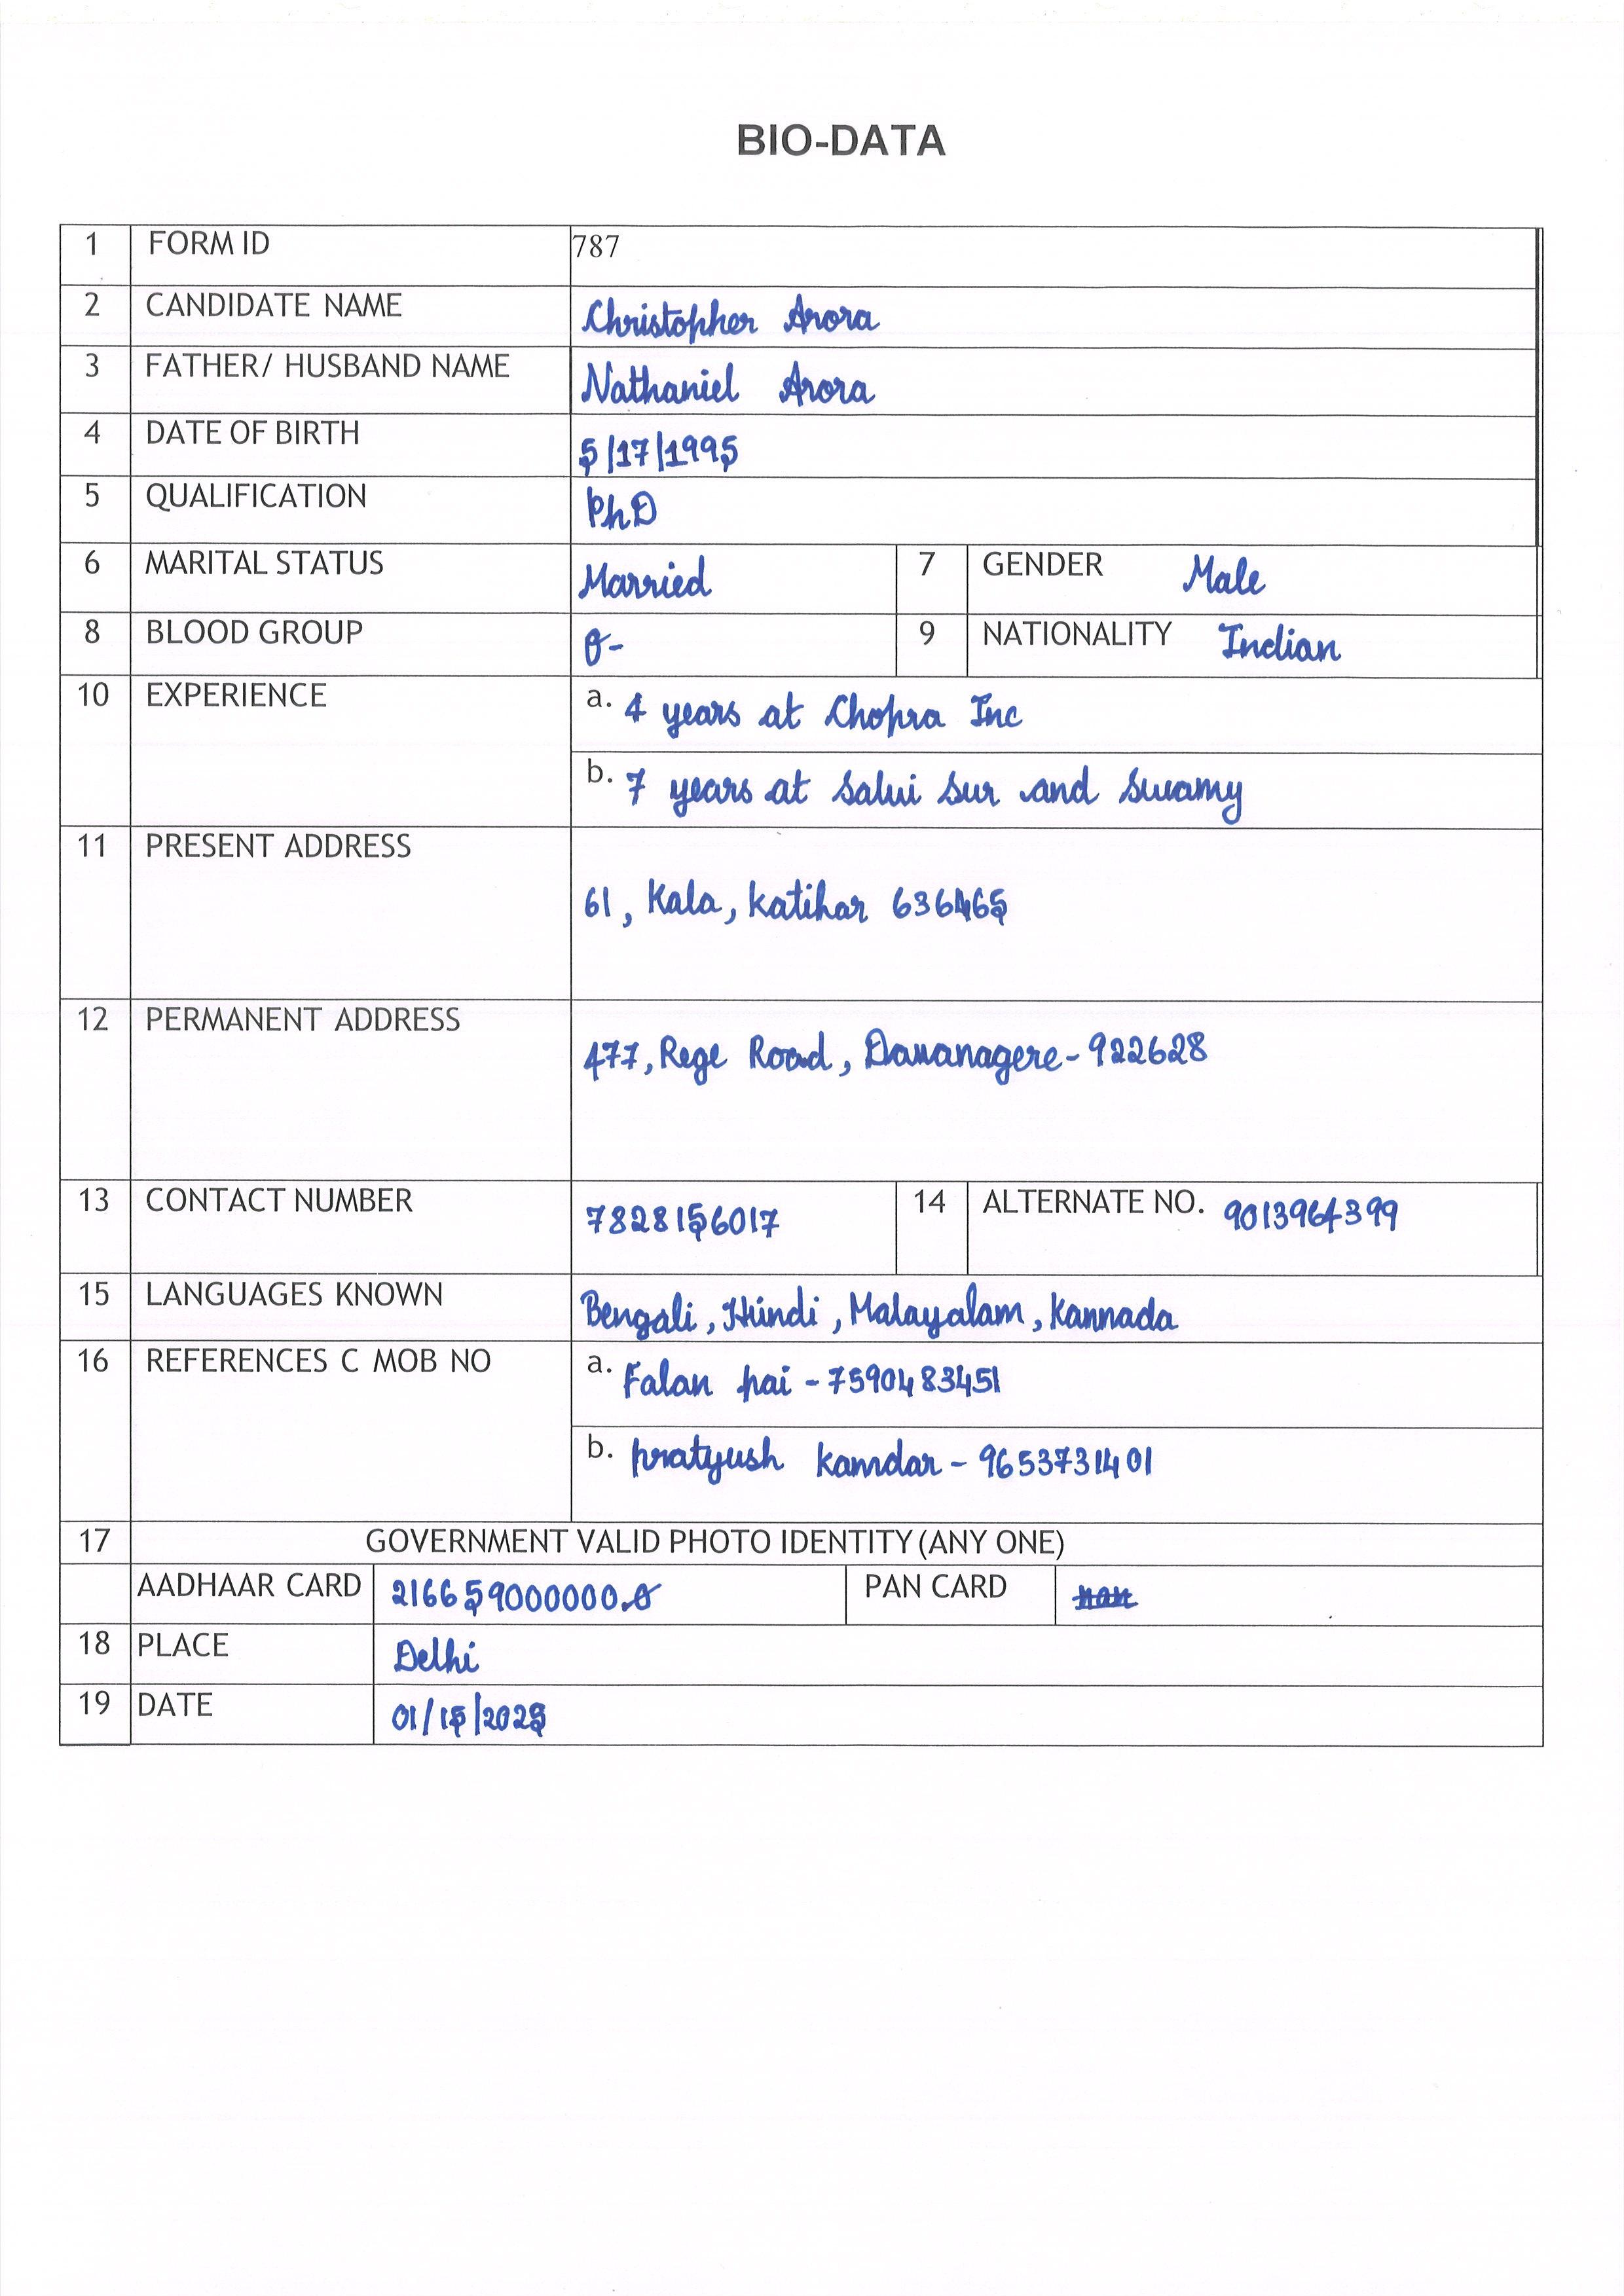 BIO-DATA
1 FORM ID 787
2 CANDIDATE NAME Christopher Arora
3 FATHER/ HUSBAND NAME Nathaniel Arora
4 DATE OF BIRTH 5/17/1995
5 QUALIFICATION PhD
6 MARITAL STATUS Married 7 GENDER Male
8 BLOOD GROUP O- 9 NATIONALITY Indian
10 EXPERIENCE a. 4 years at Chopra Inc
b. 7 years at Salvi Sur and Swamy
11 PRESENT ADDRESS
61, Kala, Katihar 636465
12 PERMANENT ADDRESS
477, Rege Road, Davanagere - 922628
13 CONTACT NUMBER 7828156017 14 ALTERNATE NO. 9013964399
15 LANGUAGES KNOWN Bengali, Hindi, Malayalam, Kannada
16 REFERENCES C MOB NO a. Falan pai - 7590483451
b. pratyush kamdar - 9653731401
17 GOVERNMENT VALID PHOTO IDENTITY (ANY ONE)
AADHAAR CARD 216659000000.0 PAN CARD
18 PLACE Delhi
19 DATE 01/15/2025